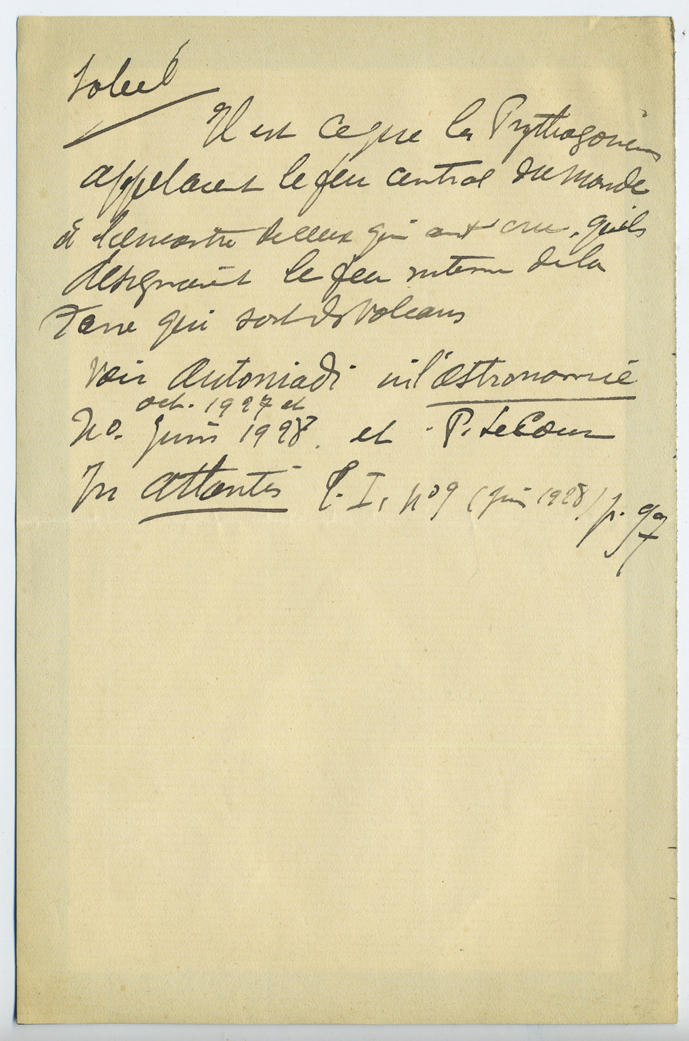 Soleil
Il est ce que les Pythagoriciens
appelaient le feu central du monde
à l'encontre de ceux qui ont cru, qu'ils
désignaient le feu interne de la
Terre qui sort des volcans
Voir Antoniadi in l'astronomie
oct. 1927 et
No. juin 1928. et P. Le Cour
In Atlantis T. I, no 9 (juin 1928) p. 97